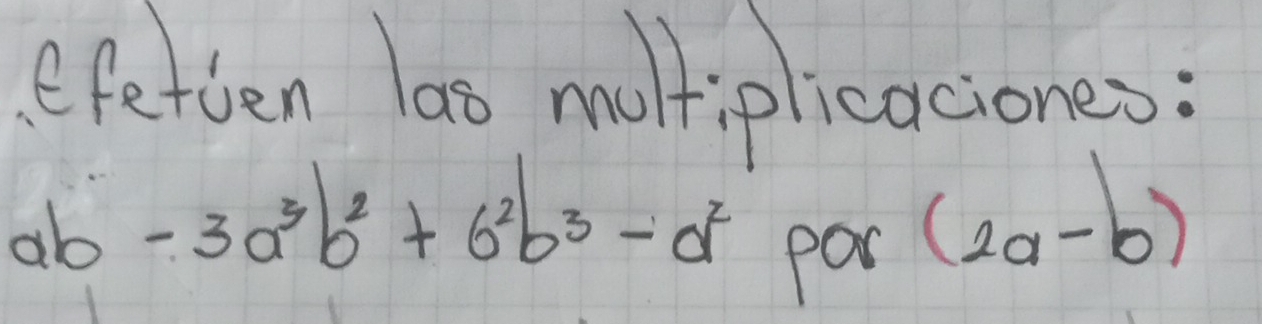 .Efetúen las multiplicaciones:
ab - 3a³b² + 6²b³ - a² por (2a-b)